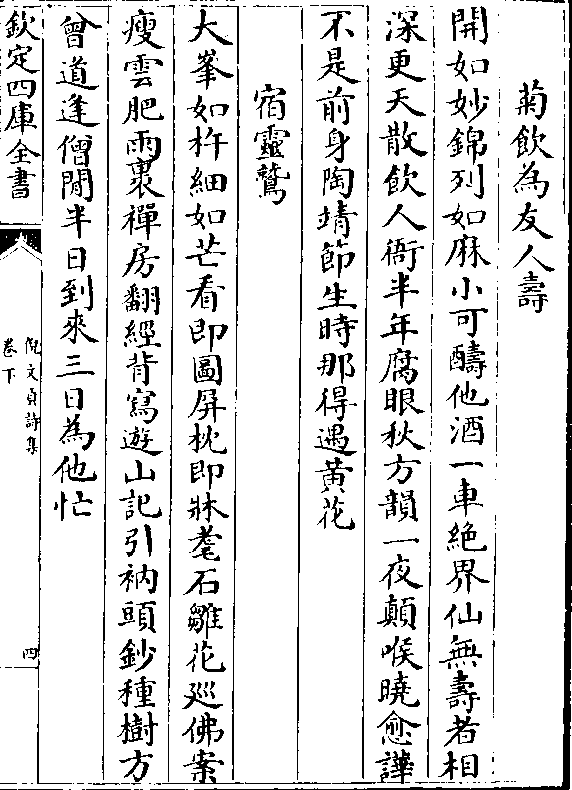 菊飲為友人壽
開如妙錦列如麻小可醻他酒一車絶界仙無壽者相
深更天散飲人衙半年腐眼秋方韻一夜顛喉曉愈譁
不是前身陶靖節生時那得遇黄花
宿靈鷲
大峯如杵細如芒看即圖屏枕即牀耄石雛花廵佛案
瘦雲肥雨裹禪房翻經背寫遊山記引衲頭鈔種樹方
曾道逢僧閒半日到來三日為他忙
欽定四庫全書
倪文貞詩集
卷下
四